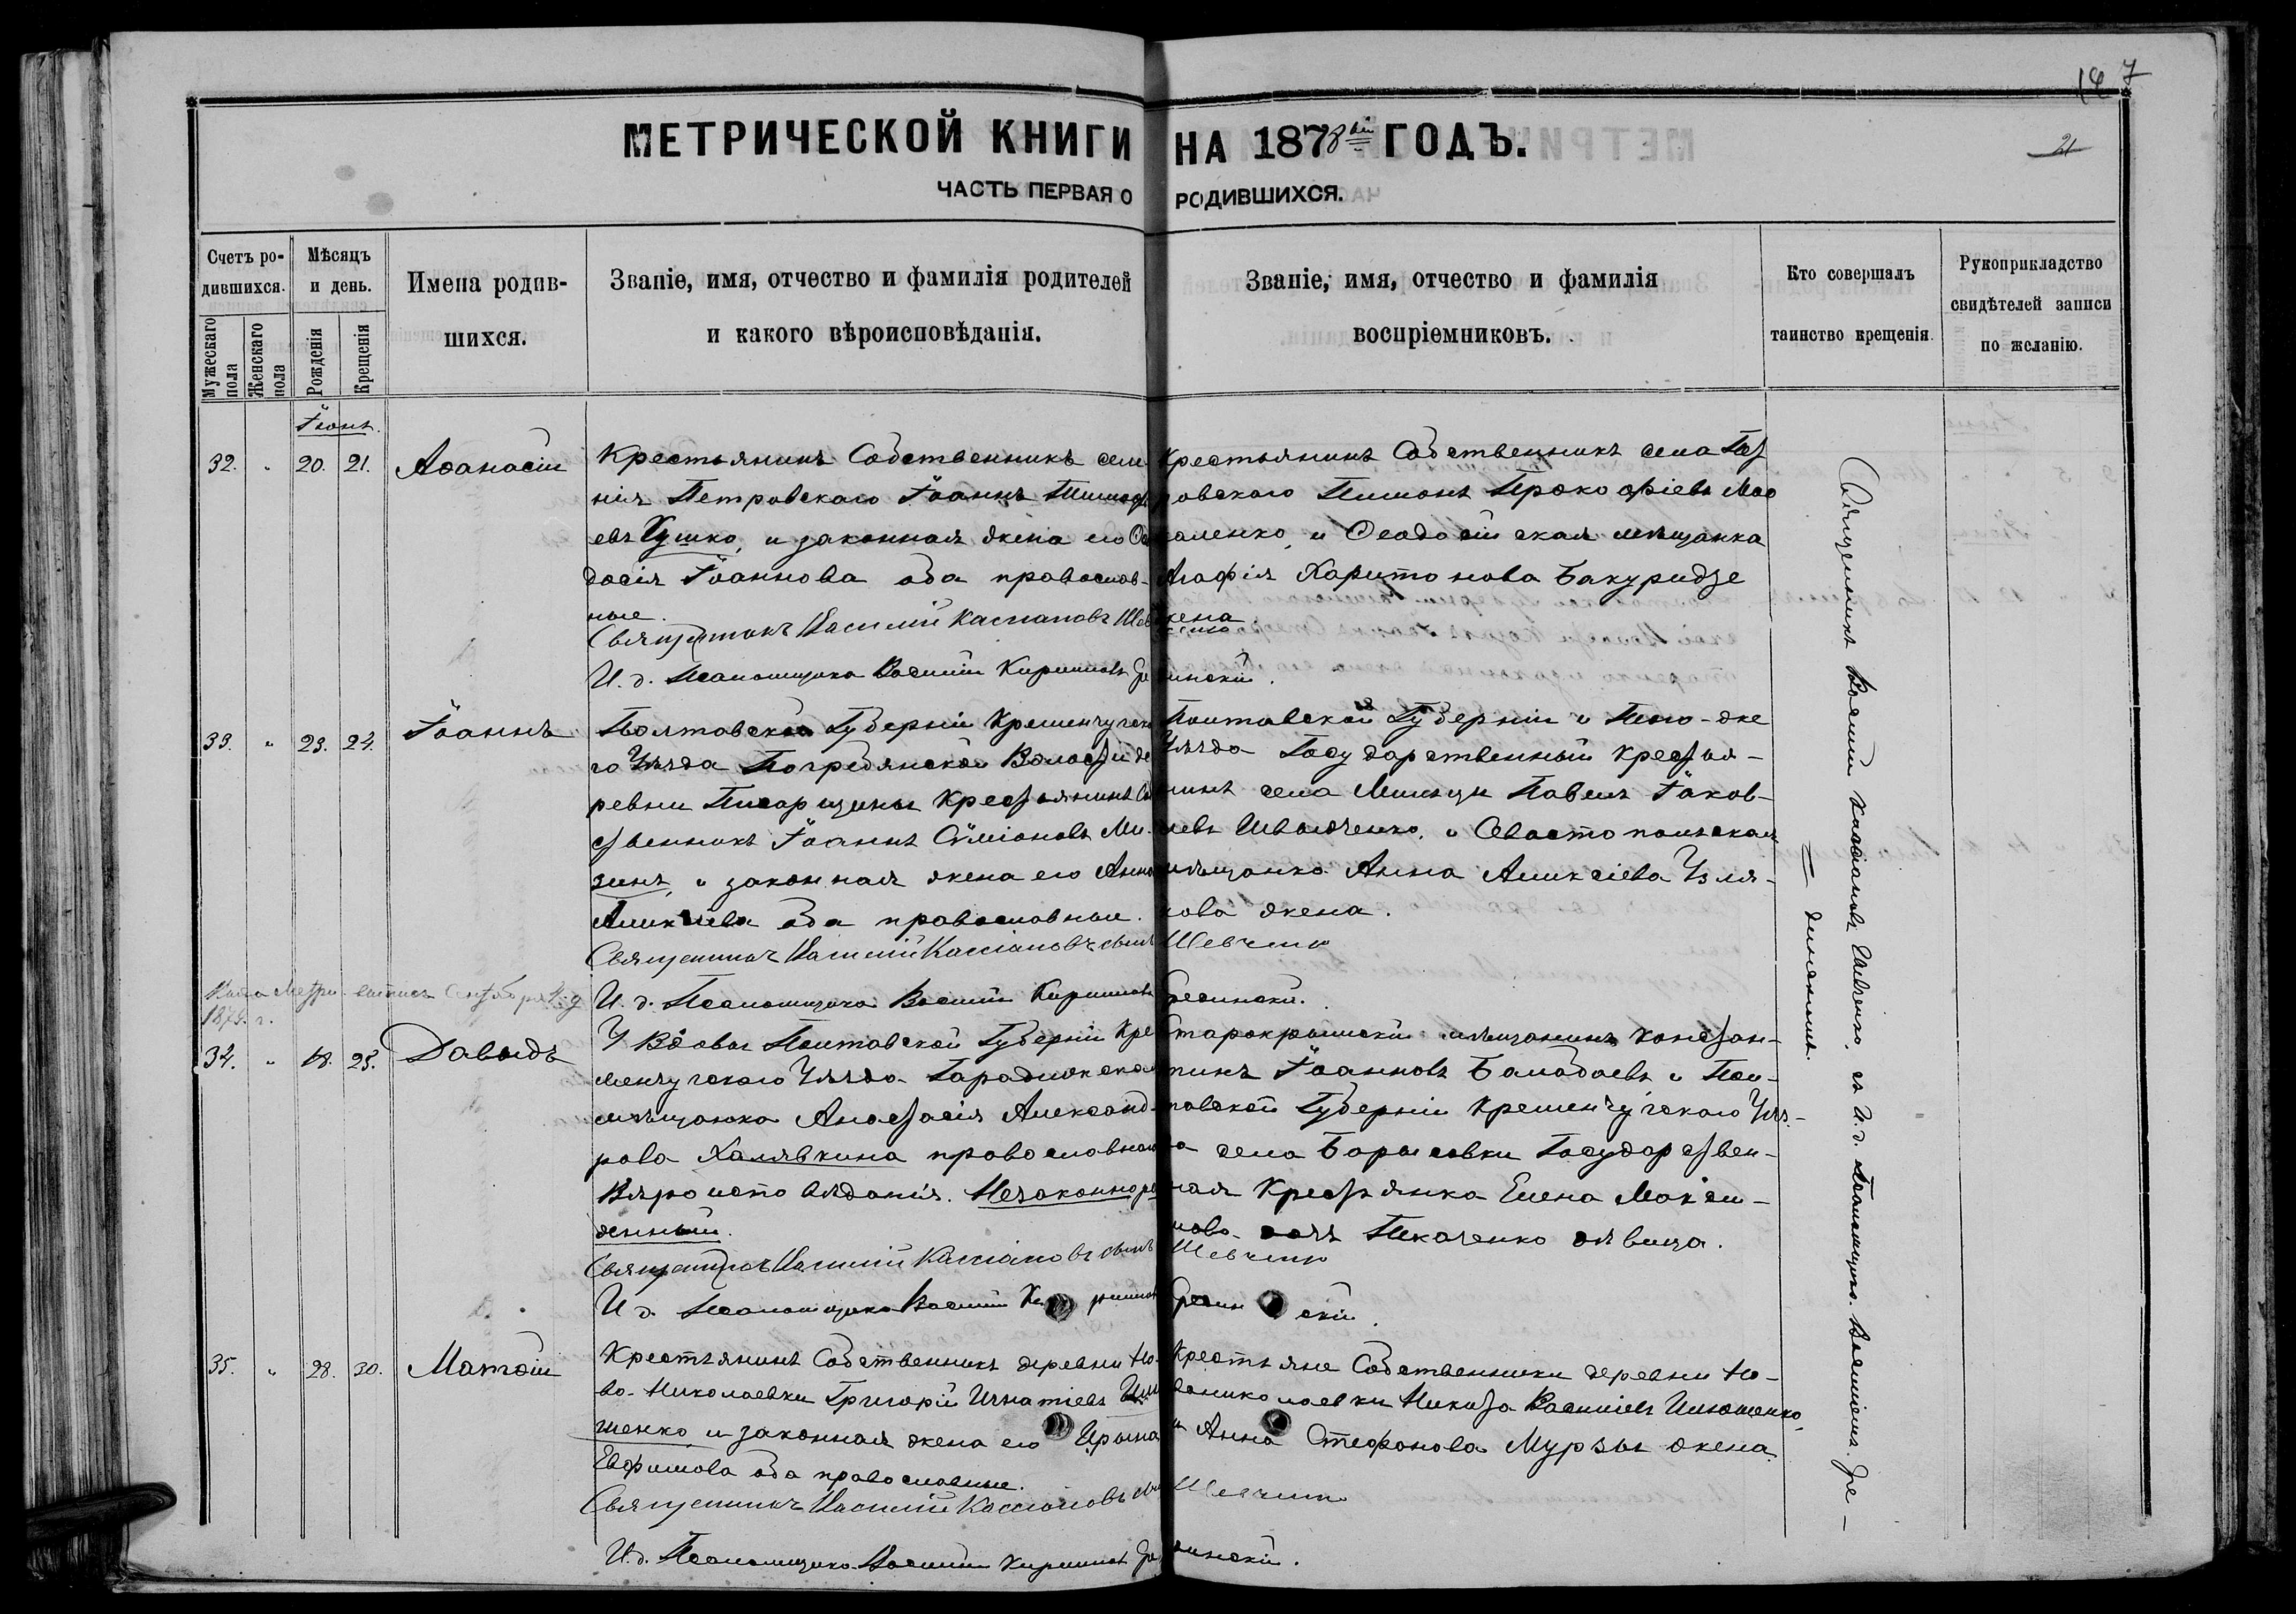 7
21
МЕТРИЧЕСКОЙ КНИГИ НА 1878ый ГОДЪ.
ЧАСТЬ ПЕРВАЯ О РОДИВШИХСЯ.
Счетъ ро-
дившихся.
Мужескаго
пола
Женскаго
пола
Мѣсяцъ
и день.
Рожденія
Крещенія
Имена родив-
шихся.
Званіе, имя, отчество и фамилія родителей
и какого вѣроисповѣданія.
Званіе, имя, отчество и фамилія
воспріемниковъ.
Кто совершалъ
таинство крещенія.
Рукоприкладство
свидѣтелей записи
по желанію.
Іюнь.
32. " 20. 21. Аѳанасій
Крестьянинъ Собственникъ селе
нія Петровскаго Іоаннъ Тимоѳ
евъ Кушко, и законная жена его Ѳео
досія Іоаннова оба православ-
ные.
Священникъ Василій Касіановъ Шевченко
И. д. Псаломщика Василій Кириловъ
Крестьянинъ Собственникъ села Пет
ровскаго Пимонъ Прокофіевъ Мос
каленко, и Ѳеодосійская мѣщанка
Агафія Харитонова Бакуридзе
жена
33. " 23. 24. Іоаннъ
Полтавской Губерніи Кременчугска
го Уѣзда Погребянской Волости де
ревни Писарщины Крестьянинъ Соб
ственникъ Іоаннъ Сѵмеоновъ Ми-
зинъ, и законная жена его Анна
Алексіева оба православные.
Священникъ Василій Кассіановъ сынъ Шевченко
И. д. Псаломщика Василій Кириловъ
Полтавской Губерніи и того-же
Уѣзда Государственный крестья-
нинъ села Павелъ Іаков-
левъ и Севастопольская
мѣщанка Анна Алексіева
кова жена.
1878 г.
34. " 18. 25. Давыдъ
У Вдовы Полтавской Губерніи Кре
менчугскаго Уѣзда Градижская
мѣщанка Анастасія Александ-
рова Халявкина православнаго
Вѣроисповѣданія. Незаконнорож
денный.
Священникъ Василій Кассіановъ сынъ Шевченко
И. д. Псаломщика Василій Кириловъ
Старокрымскій мѣщанинъ Констан-
тинъ Іоанновъ Балабаевъ и Пол-
тавской Губерніи Кременчугскаго Уѣз-
да села Борисовки Государствен-
ная Крестьянка Елена Максимова
дочь Ткаченко дѣвица.
35. " 28. 30. Матѳій
Крестьянинъ Собственникъ деревни Но-
во-Николаевки Григорій Игнатіевъ Илю
шенко и законная жена его Ирина
Евфимова оба православные.
Священникъ Василій Кассіановъ сынъ Шевченко
И. д. Псаломщика Василій Кириловъ
Крестьяне Собственники деревни Но-
вониколаевки Никита Василіевъ Илюшенко,
и Анна Стефанова Мурзы жена.
Священникъ Василій Касіановъ Шевченко, съ И. д. Псаломщика Василіемъ